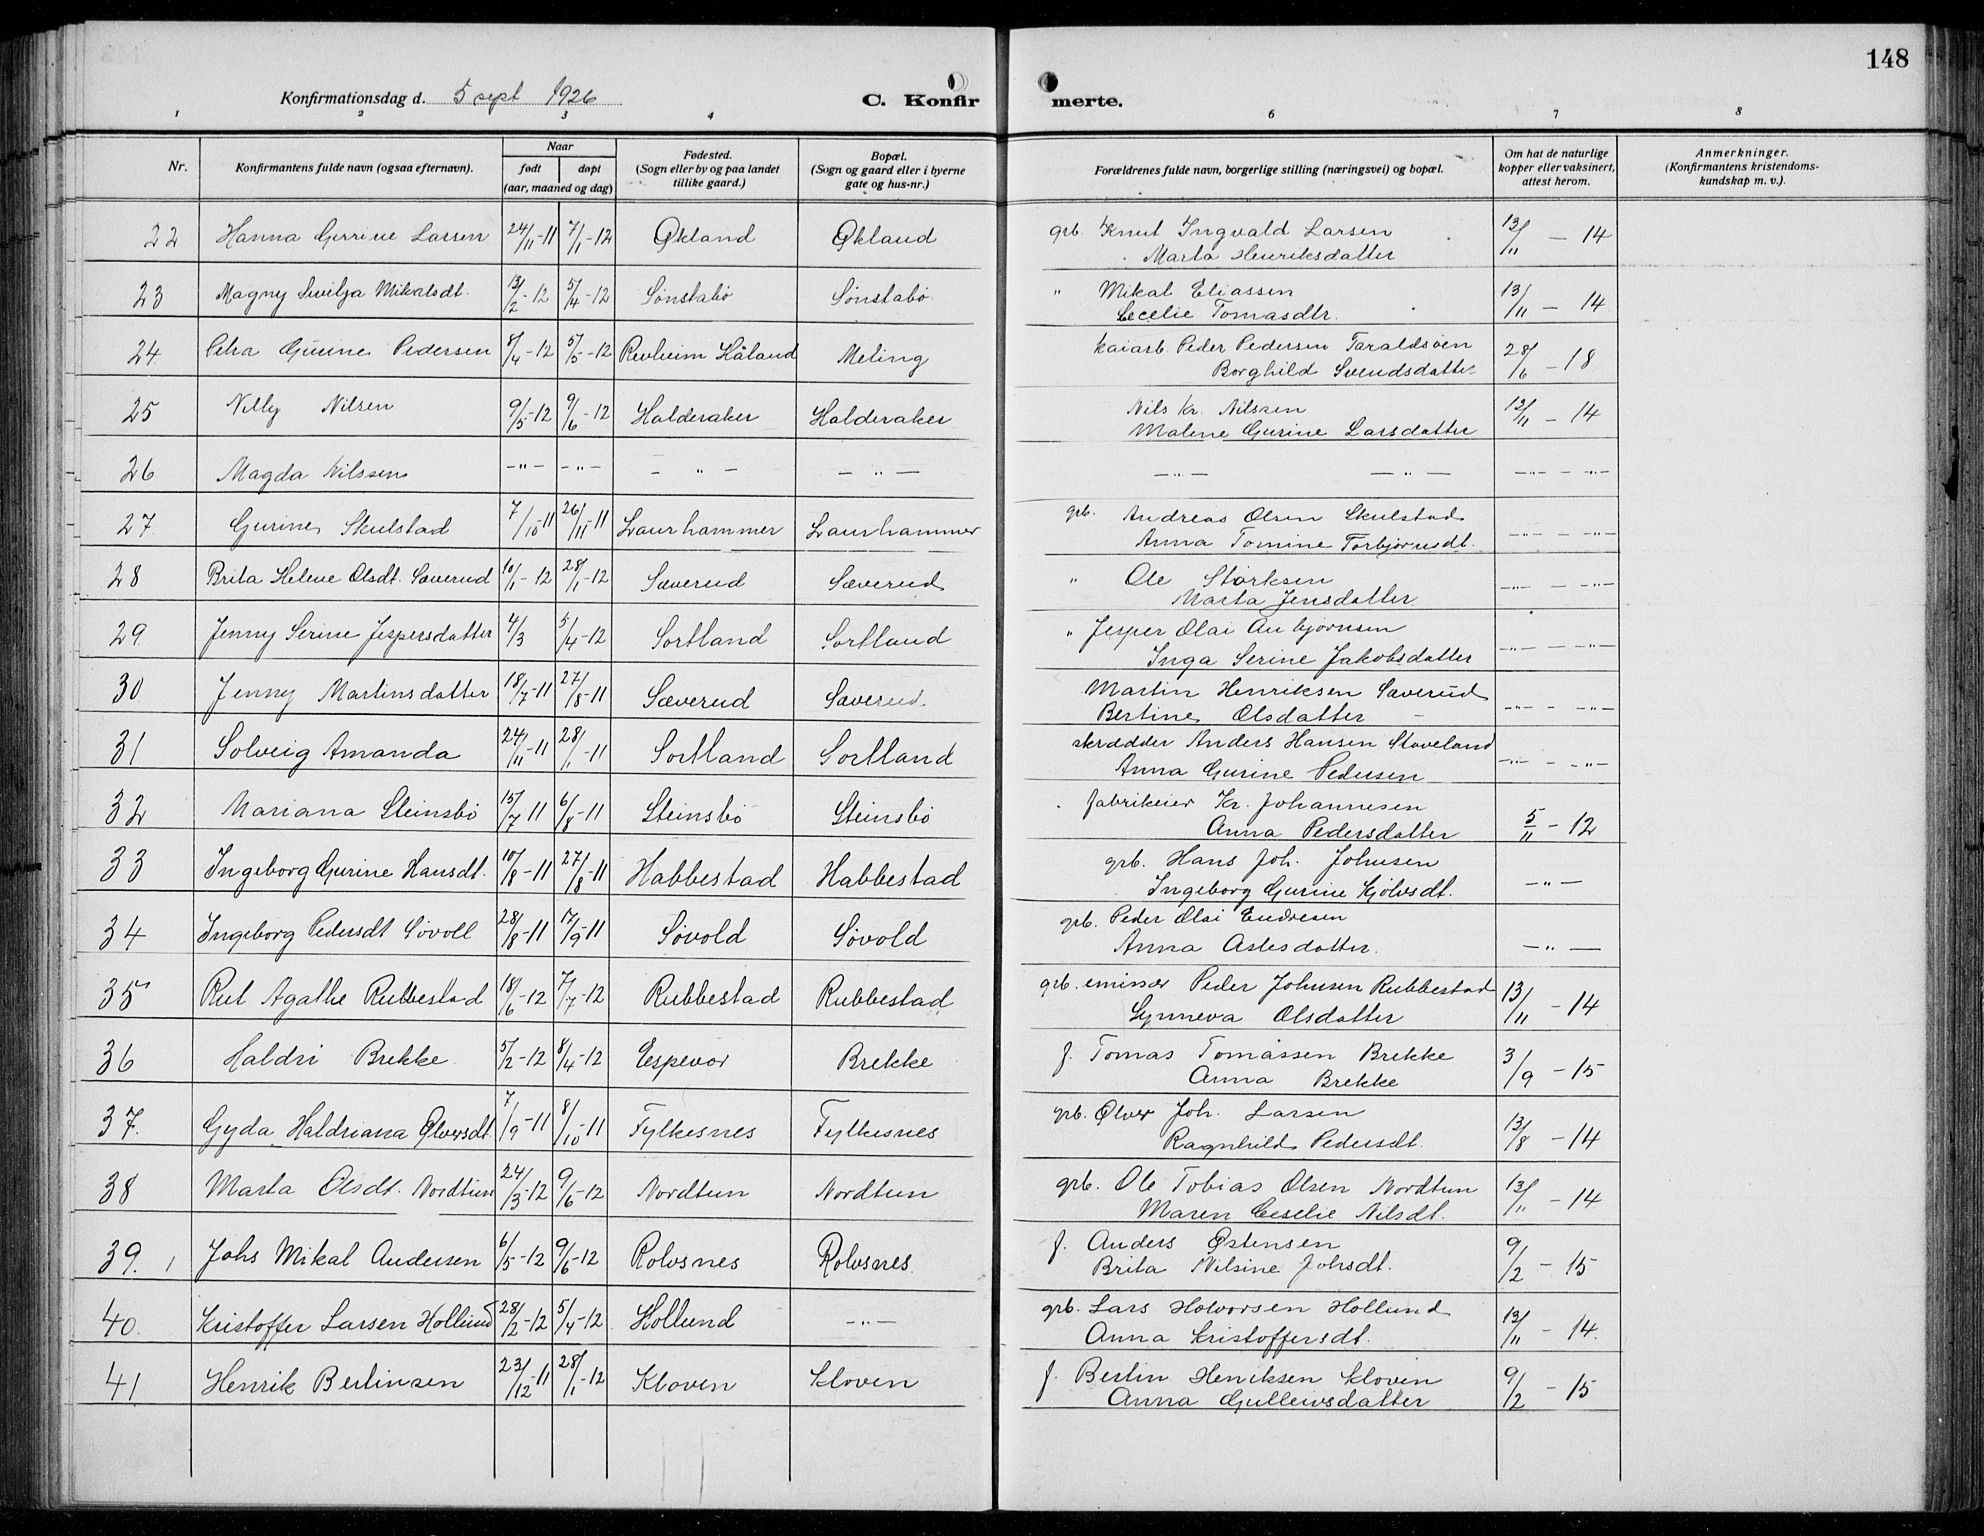 148
Konfirmationsdag d. 5 sept 1926
C. Konfir merte.
1 2 3 4 6 7 8
Nr.
Konfirmantens fulde navn (ogsaa efternavn).
Naar
født døpt
(aar, maaned og dag)
Fødested.
(Sogn eller by og paa landet
tillike gaard.)
Bopæl.
(Sogn og gaard eller i byerne
gate og hus-nr.)
Forældrenes fulde navn, borgerlige stilling (næringsvei) og bopæl.
Om hat de naturlige
kopper eller vaksinert,
attest herom.
Anmerkninger.
(Konfirmantens kristendoms-
kundskap m. v.).
22 Hanna Gurine Larsen 24/11-11 7/1-12 Økland Økland grb. Knut Ingvald Larsen 13/11 - 14
Marta Henriksdatter
23 Magny Mikalsdt. 13/2-12 5/4-12 Sønstabø Sønstabø " Mikal Eliassen 13/11 - 14
Cecelie Tomasdtr.
24 Petra Gurine Pedersen 8/4-12 5/5-12 Revheim Håland Meling kaiarb. Peder Pedersen Taraldsøen 28/6 - 18
Borghild Svendsdatter
25 Nelly Nilsen 9/5-12 9/6-12 Halderaker Halderaker Nils Kr. Nilssen 13/11 - 14
Malene Gurine Larsdatter
26 Magda Nilssen -"- -"- - " - - " - -"- - " - -"- -"-
27 Gurine Skulstad 7/10-11 26/11-11 Laurhammer Laurhammer grb. Andreas Olsen Skulstad -"- - -"-
Anna Tomine Torbjørnsdt.
28 Brita Helene Olsdt. Sæverud 10/1-12 28/1-12 Sæverud Sæverud " Ole Størksen -"- - -"-
Marta Jensdatter
29 Jenny Serine Jespersdatter 4/3 5/4-12 Sortland Sortland " Jesper Olai Anbjørnsen -"- - -"-
Inga Serine Jakobsdatter
30 Jenny Martinsdatter 18/7-11 27/8-11 Sæverud Sæverud Martin Henriksen Sæverud -"- - -"-
Bertine Olsdatter -
31 Solveig Amanda 24/11-11 28/1-11 Sortland Sortland skrædder Anders Hansen Staveland -"- - -"-
Anna Gurine Pedersen
32 Mariana Steinsbø 15/7 11 6/8-11 Steinsbø Steinsbø fabrikeier Kr. Johannesen 5/11 - 12
Anna Pedersdatter
33 Ingeborg Gurine Hansdt. 10/8-11 27/8-11 Habbestad Habbestad grb. Hans Joh. Johnsen -"-
Ingeborg Gurine Kjølvsdt.
34 Ingeborg Pedersdt Søvoll 28/8-11 17/9-11 Søvold Søvold grb. Peder Olai Endresen -"-
Anna Aslesdatter.
35 Rut Agathe Rubbestad 18/6-12 7/7-12 Rubbestad Rubbestad grb. emissær Peder Johnsen Rubbestad 13/11 - 14
Synneva Olsdatter
36 Haldri Brekke 5/2-12 8/4-12 Espevær Brekke f. Tomas Tomassen Brekke 3/9 - 15
Anna Brekke
37. Gyda Haldriana Ølversdt. 7/9-11 8/10-11 Fylkesnes Fylkesnes grb. Ølver Joh. Larsen 13/8 - 14
Ragnhild Pedersdt.
38 Marta Olsdt. Nordtun 24/3-12 9/6-12 Nordtun Nordtun grb. Ole Tobias Olsen Nordtun 13/11 - 14
Maren Ceselie Nilsdt.
39. 1 Johs Mikal Andersen 6/5-12 9/6-12 Rolvsnes Rolvsnes f. Anders Østensen 9/2 - 15
Brita Nilsine Johsdt.
40. Kristoffer Larsen Hollund 28/2-12 5/4-12 Hollund -"- grb. Lars Halvorsen Hollund 13/11 - 14.
Anna Kristoffersdt.
41. Henrik Bertinsen 23/12-11 28/1-12 Kloven Kloven f. Bertin Heniksen Kloven 9/2 - 15
Anna Gulleivsdatter